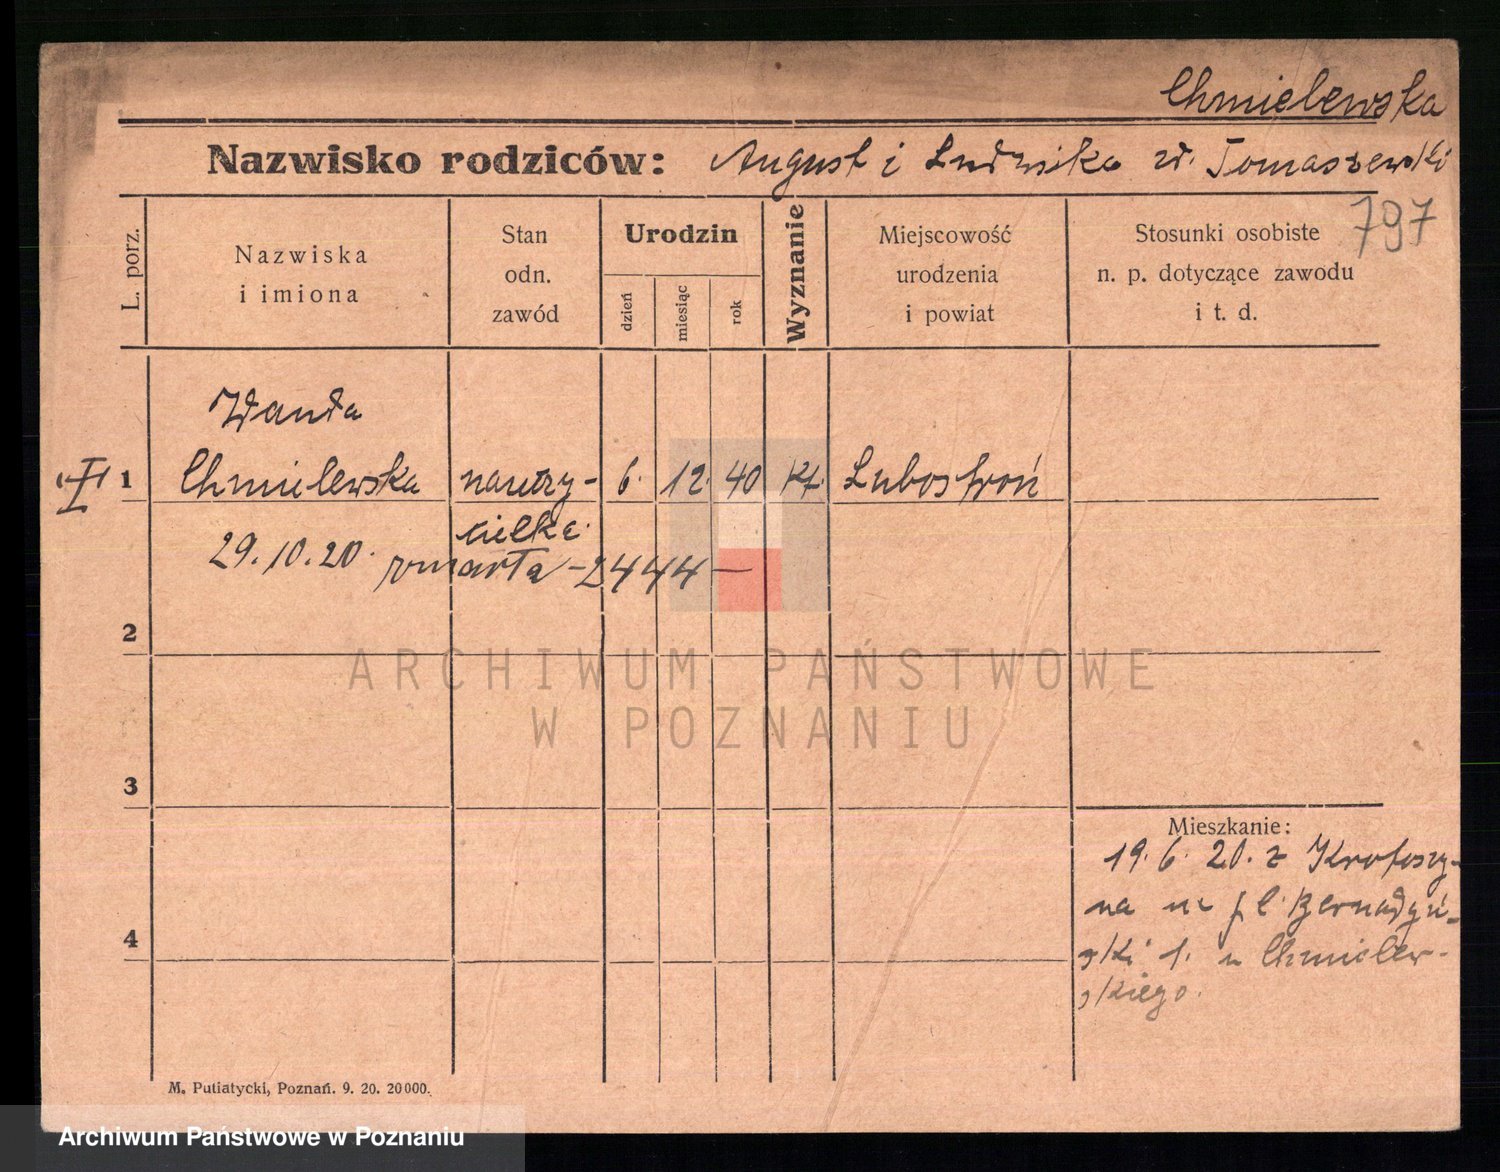 Chmielewska
Nazwisko rodziców: August i Ludwika zd. Tomaszewski
797
L. porz.
Nazwiska
i imiona
Stan
odn.
zawód
Urodzin
dzień
miesiąc
rok
Wyznanie
Miejscowość
urodzenia
i powiat
Stosunki osobiste
n. p. dotyczące zawodu
i t. d.
Wanda
1 Chmielewska nauczy- 6. 12. 40 kt. Lubostroń
cielka
29.10.20. zmarła - 2444 -
2
ARCHIWUM PAŃSTWOWE
W POZNANIU
3
Mieszkanie:
19. 6. 20. z Krotoszy-
na na pl. Bernadyń-
ski 1. u Chmielew-
skiego.
4
M. Putiatycki, Poznań. 9. 20. 20000.
Archiwum Państwowe w Poznaniu